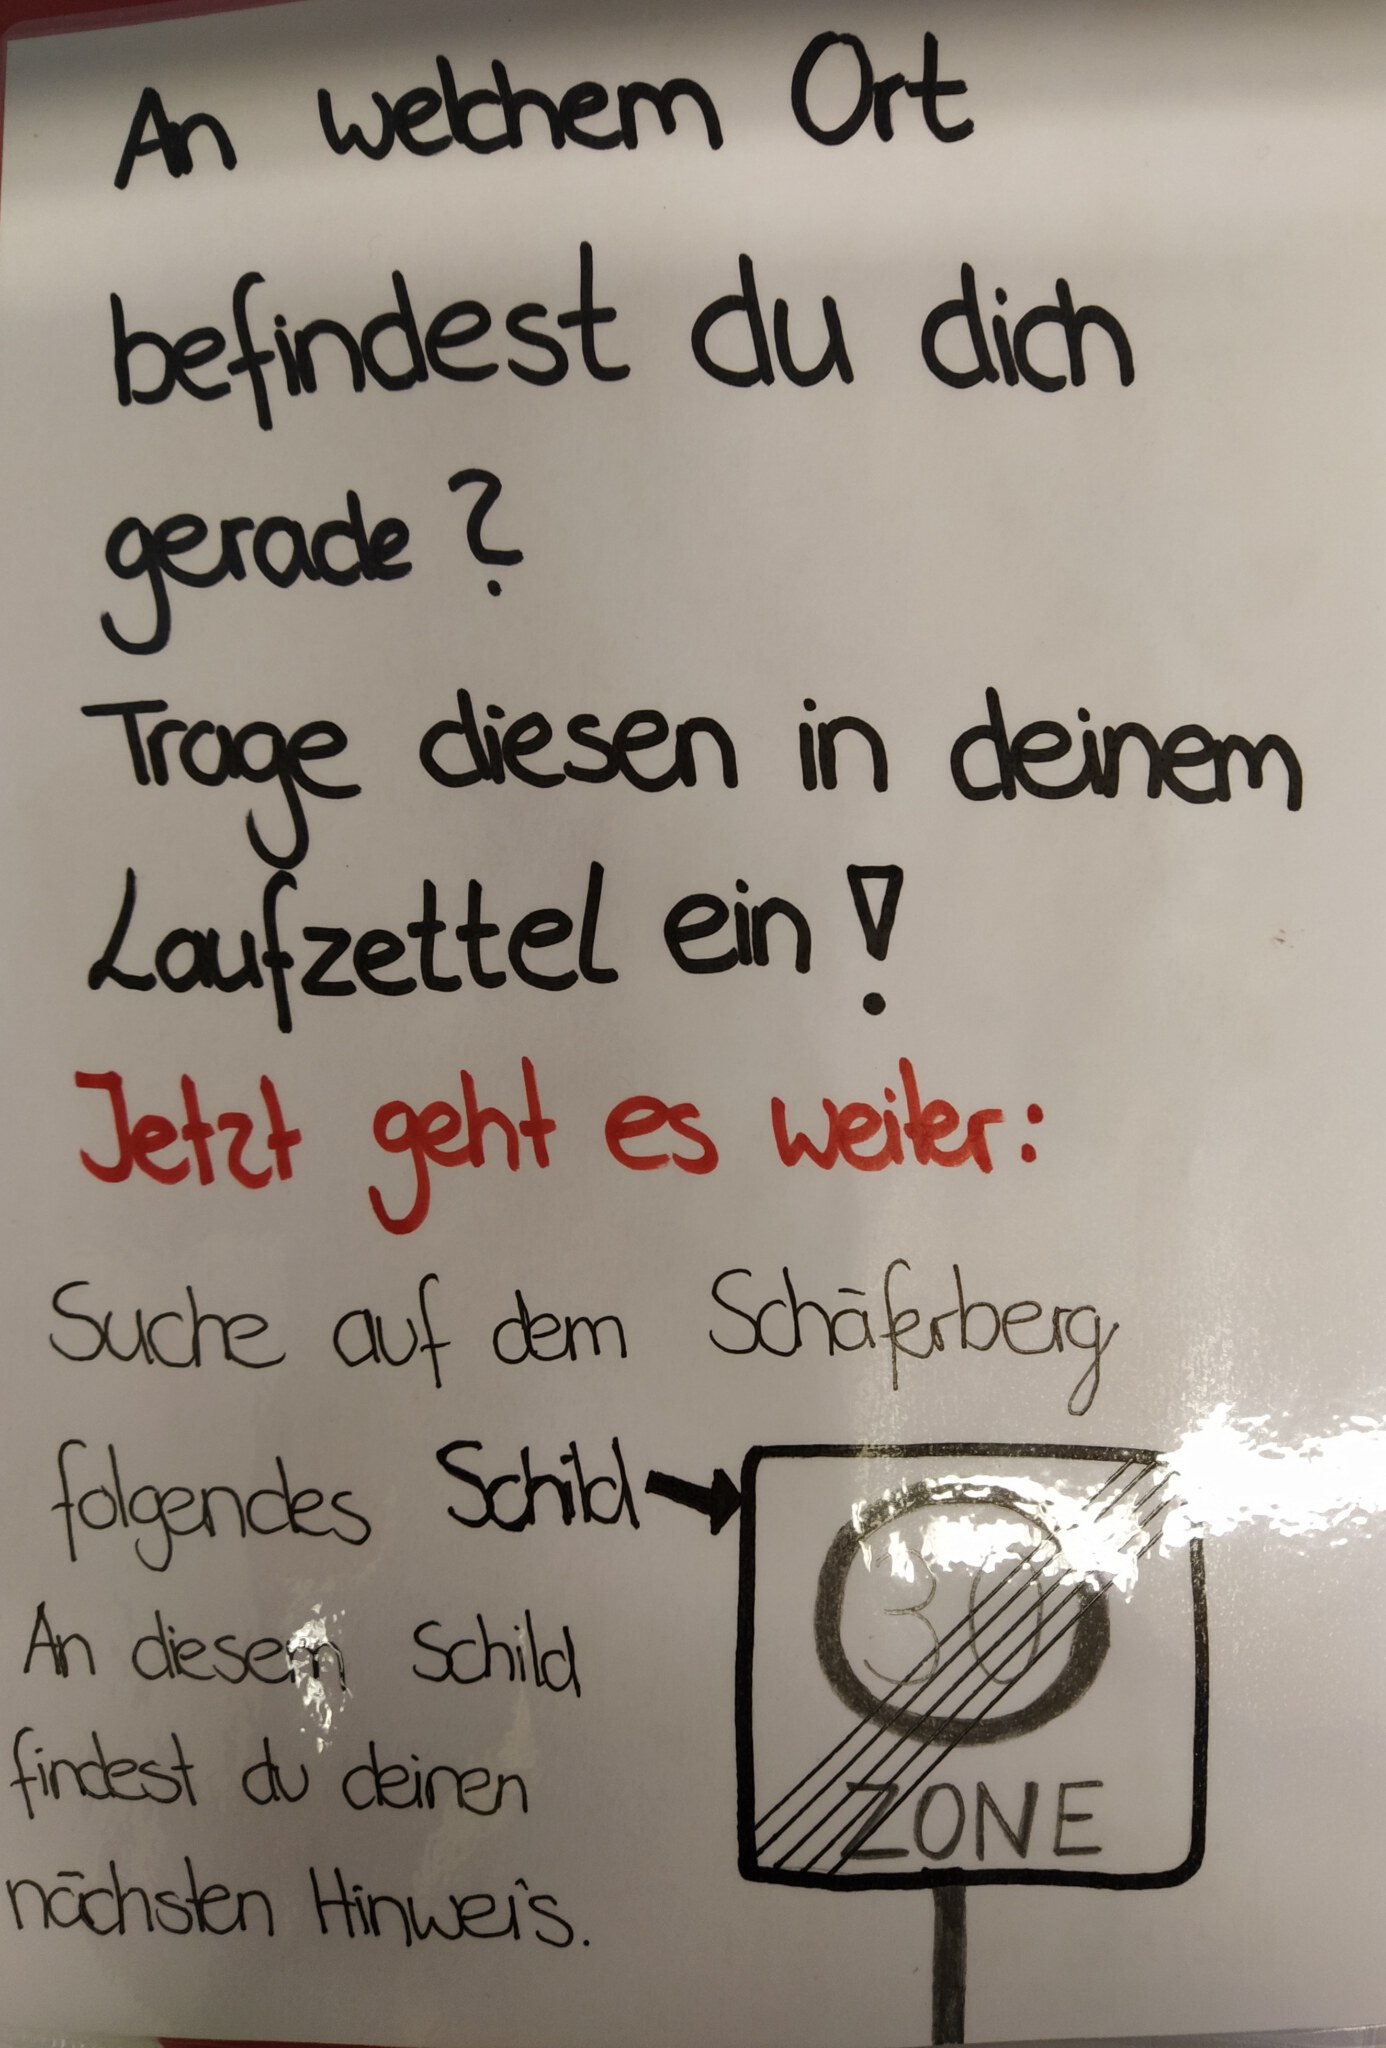 An welchem Ort
befindest du dich
gerade?
Trage diesen in deinem
Laufzettel ein!
Jetzt geht es weiter:
Suche auf dem Schäferberg
folgendes Schild
An diesem Schild
findest du deinen
nächsten Hinweis.
30
ZONE